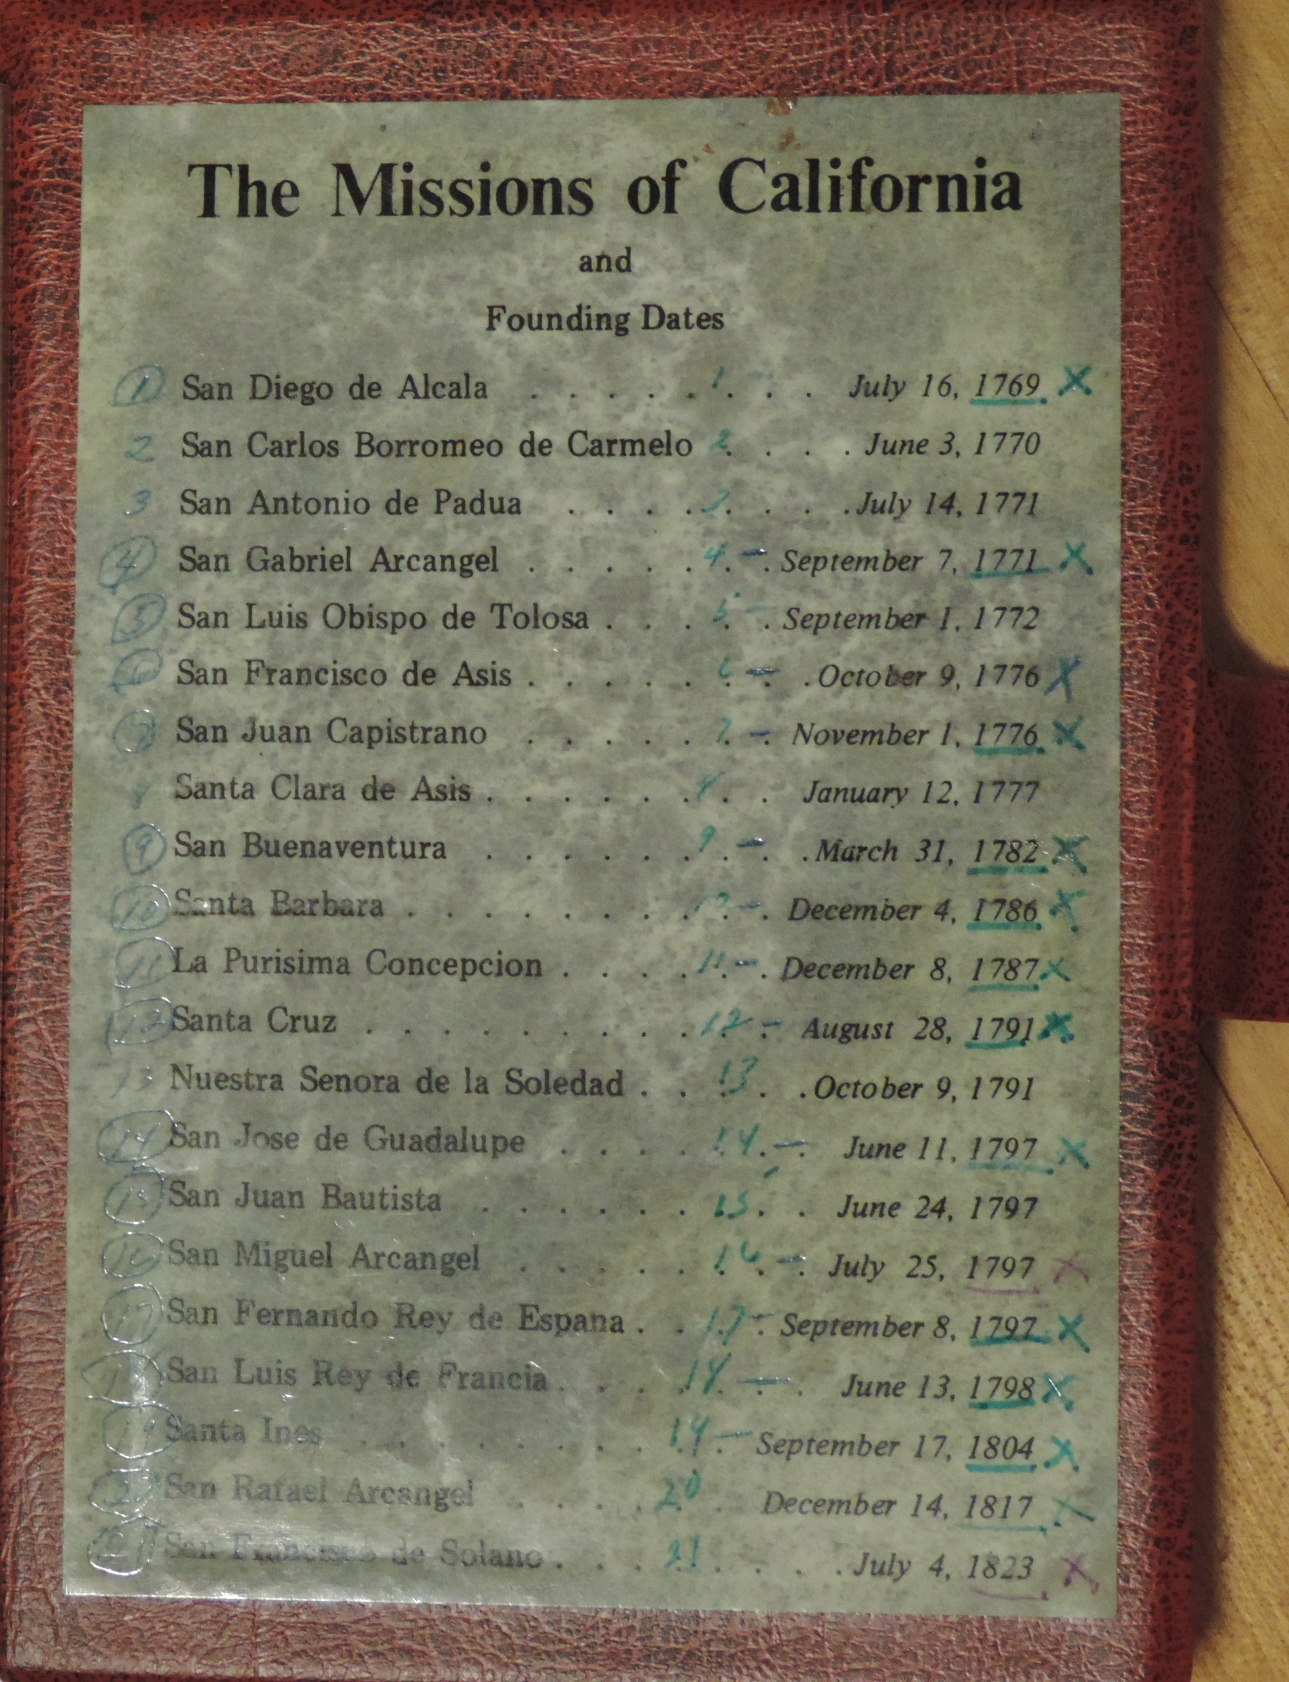 The Missions of California
and
Founding Dates
1 San Diego de Alcala . . . . . . 1 . . . July 16, 1769 X
2 San Carlos Borromeo de Carmelo 2 . . . . June 3, 1770
3 San Antonio de Padua . . . . . 3 . . . . July 14, 1771
4 San Gabriel Arcangel . . . . . 4 . - . September 7, 1771 X
5 San Luis Obispo de Tolosa . . . . 5 - . September 1, 1772
6 San Francisco de Asis . . . . . 6 - . October 9, 1776 X
7 San Juan Capistrano . . . . . . 7 . - . November 1, 1776 X
8 Santa Clara de Asis . . . . . . 8 . . January 12, 1777
9 San Buenaventura . . . . . . . 9 . - . March 31, 1782 X
10 Santa Barbara . . . . . . . . 10 - . December 4, 1786 X
11 La Purisima Concepcion . . . . 11 . - . December 8, 1787 X
12 Santa Cruz . . . . . . . . . 12 - August 28, 1791 X
13 Nuestra Senora de la Soledad . . 13 . . October 9, 1791
14 San Jose de Guadalupe . . . . 14 . - . June 11, 1797 X
15 San Juan Bautista . . . . . . 15 . . June 24, 1797
16 San Miguel Arcangel . . . . . 16 . - . July 25, 1797 X
17 San Fernando Rey de Espana . . 17 - . September 8, 1797 X
18 San Luis Rey de Francia . . . 18 . - . June 13, 1798 X
19 Santa Ines . . . . . . . . 19 . - September 17, 1804 X
San Rafael Arcangel . . . . 20 . December 14, 1817 X
21 San Francisco de Solano . . . 21 . . . . July 4, 1823 X